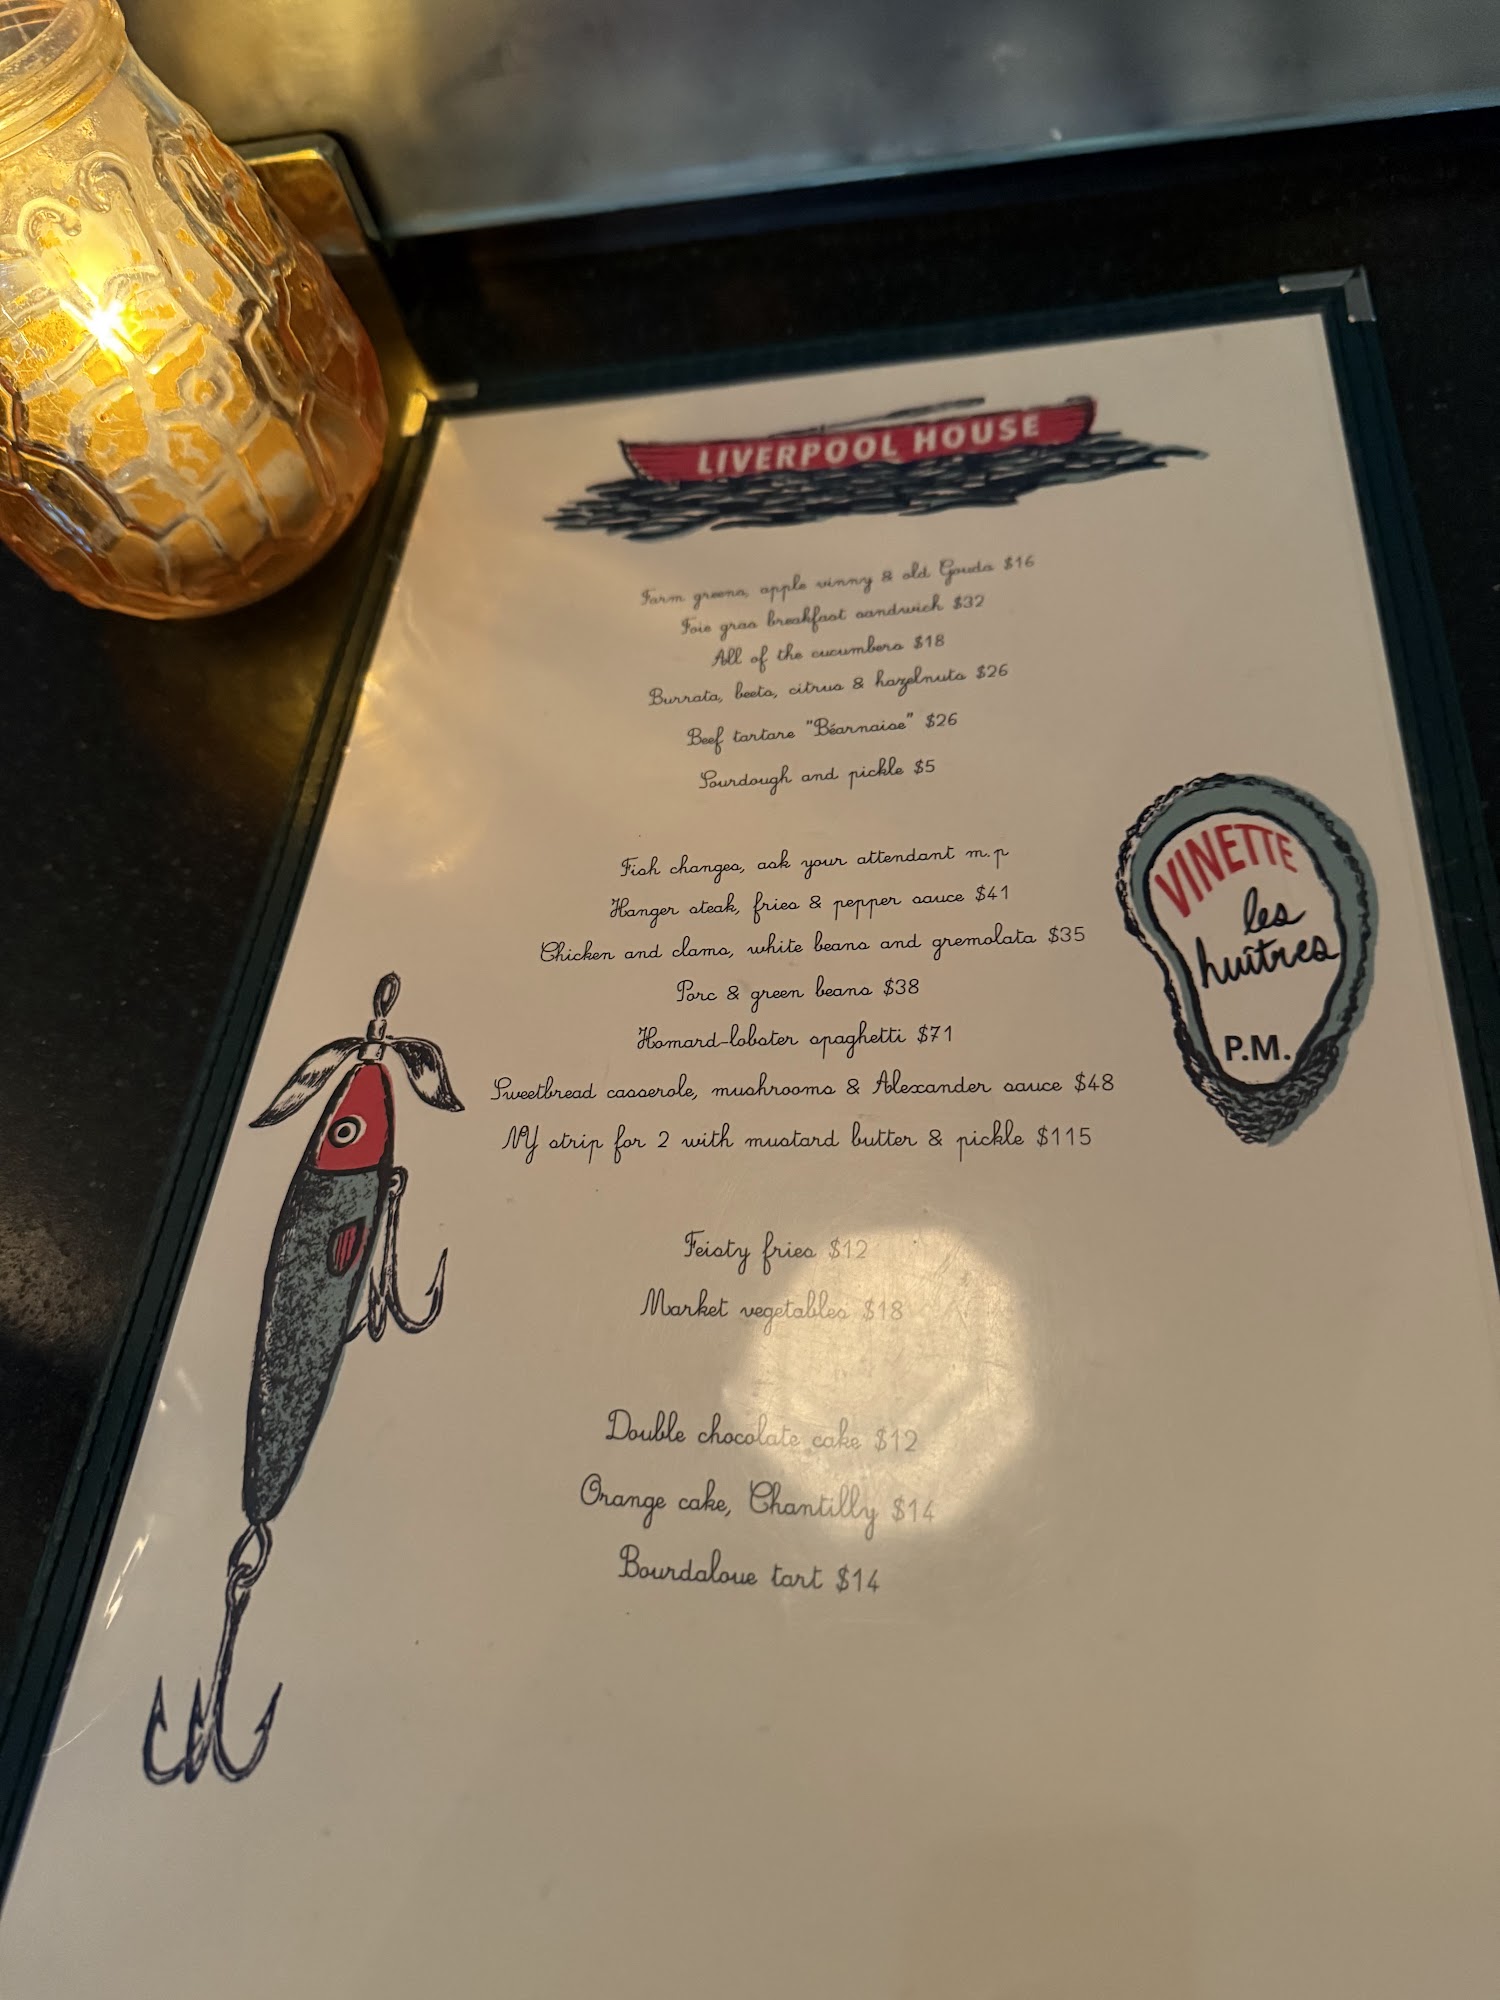 LIVERPOOL HOUSE
Farm greens, apple vinny & old Gouda $16
Foie gras breakfast sandwich $32
All of the cucumbers $18
Burrata, beets, citrus & hazelnuts $26
Beef tartare "Béarnaise" $26
Sourdough and pickle $5
Fish changes, ask your attendant m.p
Hanger steak, fries & pepper sauce $41
Chicken and clams, white beans and gremolata $35
Porc & green beans $38
Homard-lobster spaghetti $71
Sweetbread casserole, mushrooms & Alexander sauce $48
NY strip for 2 with mustard butter & pickle $115
Feisty fries $12
Market vegetables $18
Double chocolate cake $12
Orange cake, Chantilly $14
Bourdaloue tart $14
VINETTE
les
huîtres
P.M.